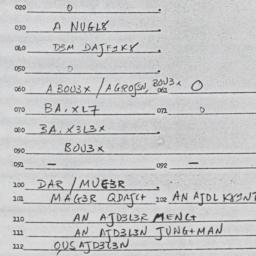 020 0
030 A NUGL8
040 DSM DAJF1K8
050 0
060 A BOU3X / AGROJSN, BOU3X 061 0
070 BA. XL7 071 0
080 BA. X3L3X
090 BOU3X
091 — 092 —
100 DAR / MUG3R
101 MAG3R QDAJC+ 102 AN AJDL
110 AN AJD3L3R MENC+
111 AN AJD3L3N JUNG+MAN
112 QUSAJD3L3N